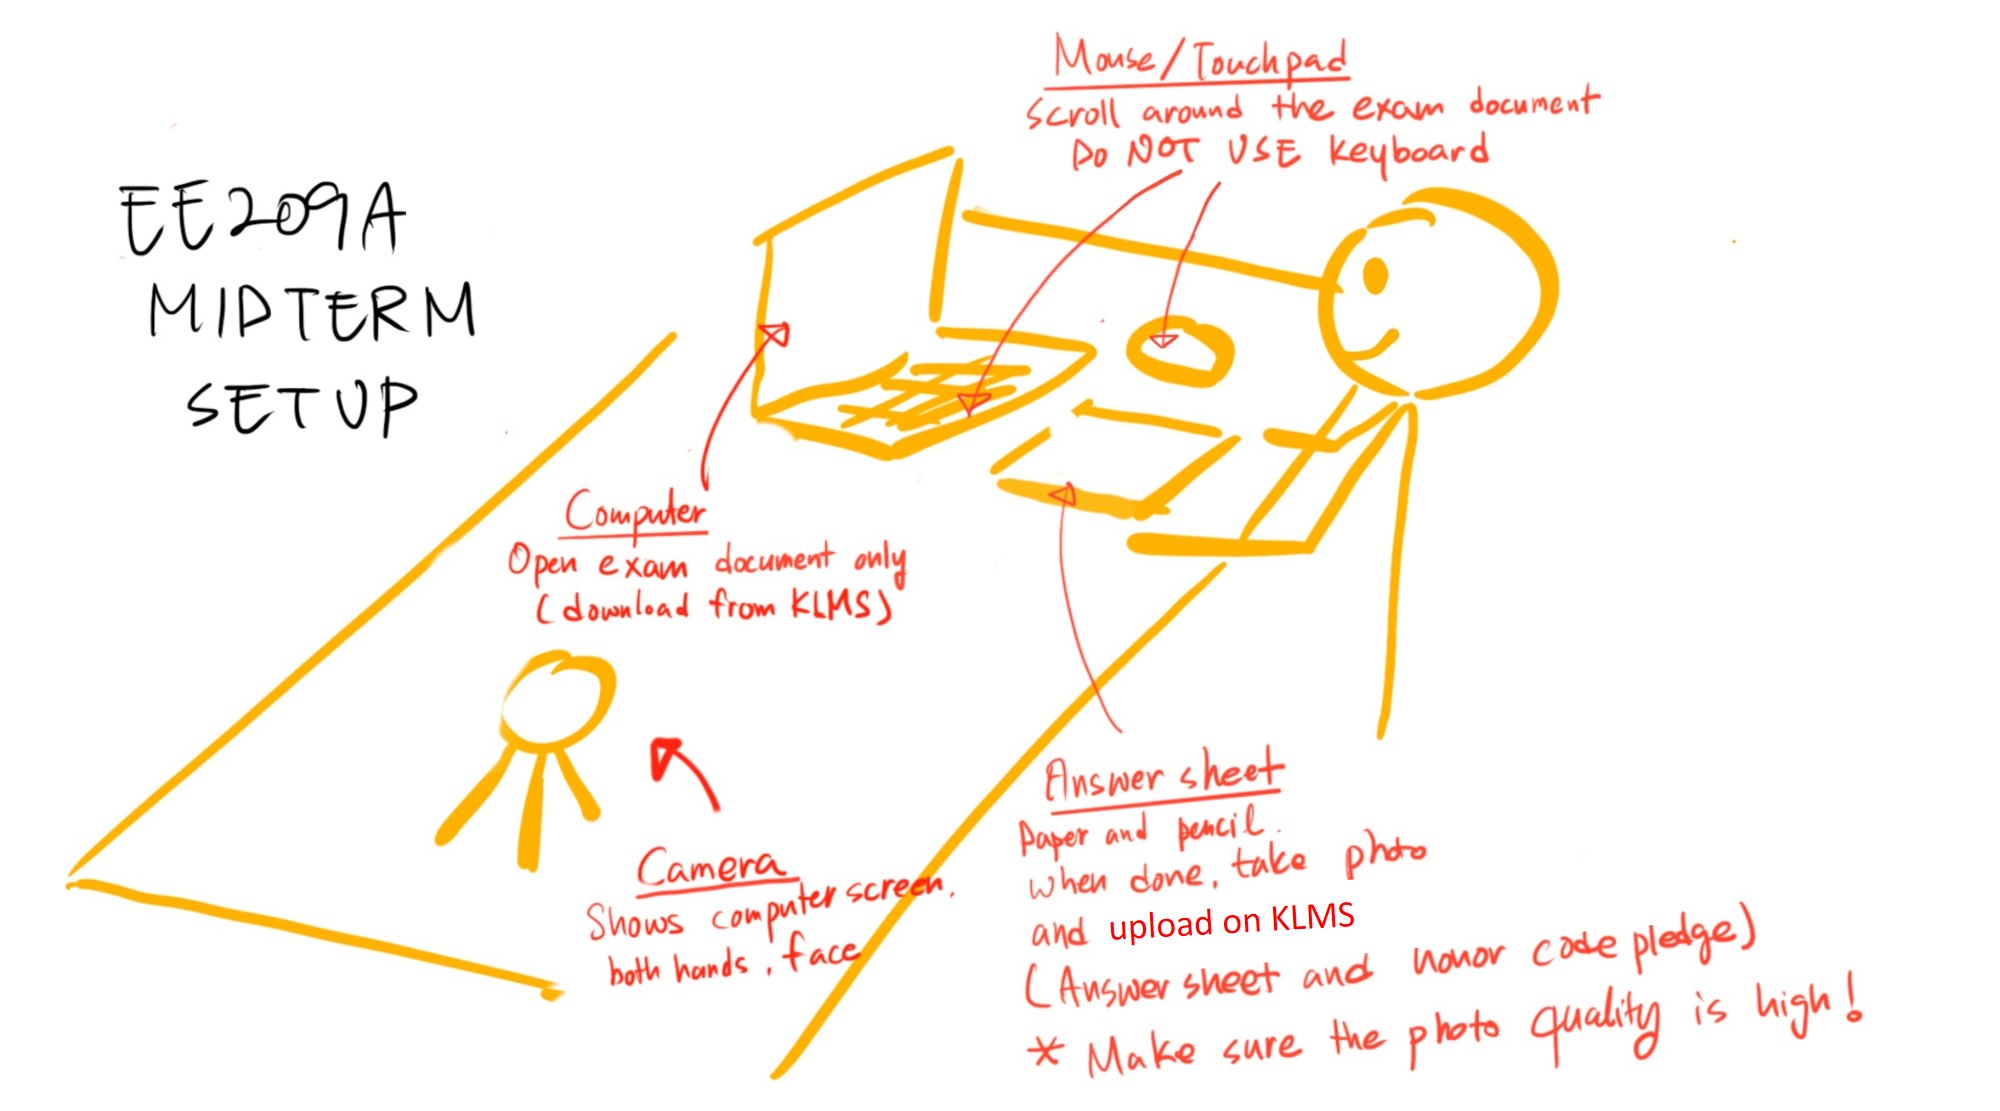 EE209A
MIDTERM
SETUP
Mouse/Touchpad
Scroll around the exam document
Do NOT USE keyboard
Computer
Open exam document only
(download from KLMS)
Camera
Shows computer screen,
both hands, face
Answer sheet
Paper and pencil.
When done, take photo
and upload on KLMS
(Answer sheet and honor code pledge)
* Make sure the photo quality is high!